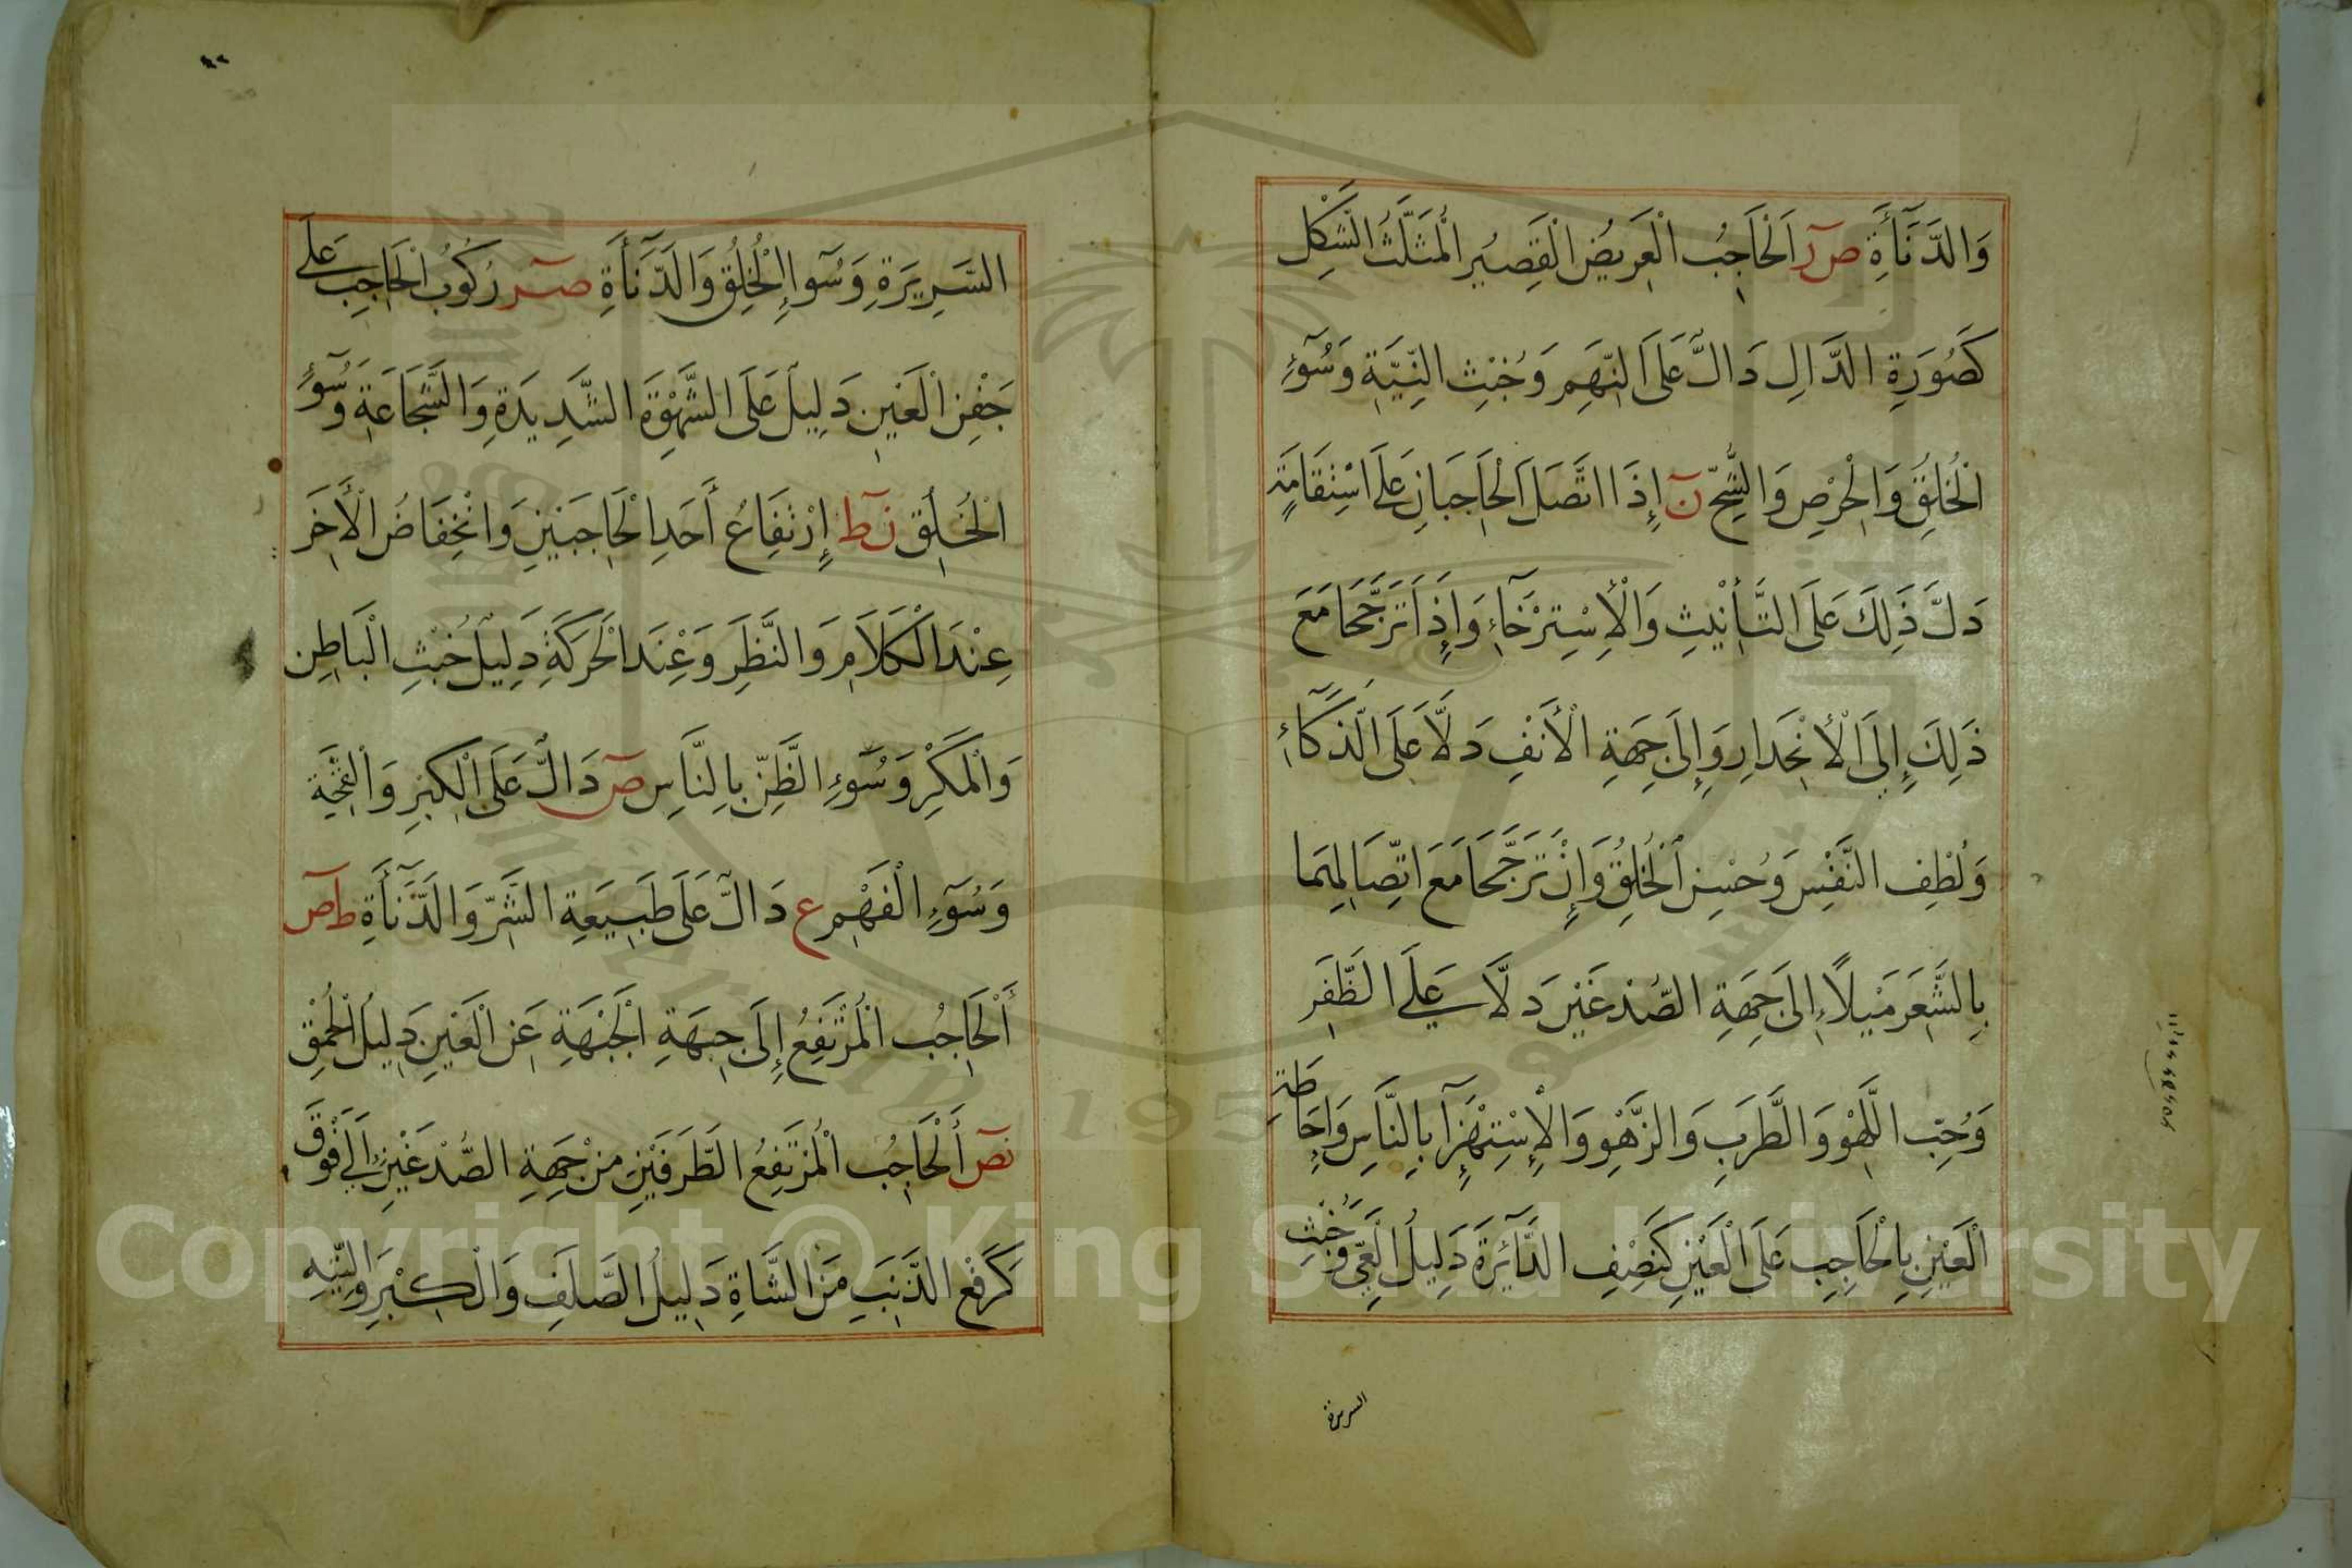 وَالدَّنَآءَةِ صٓ رٓ اَلْحَاجِبُ الْعَرِيضُ الْقَصِيُر الْمُثَلَّثُ الشَّكِل
كَصُورَةِ الدَّالِ دَالٌّ عَلَى النَّهَمِ وَخُبْثِ النِّيَّةِ وَسُوٓءِ
الْخُلُقِ وَالْحِرْصِ وَالشُّحِّ نٓ إِذَا اتَّصَلَ الْحَاجِبَانِ عَلَى اسْتِقَامَةٍ
دَلَّ ذَلِكَ عَلَى التَّأْنِيثِ وَالْأِسْتِرْخَآءِ وَإِذَا تَرَجَّحَا مَعَ
ذَلِكَ إِلَى الْأِنْحِدَارِ وَإِلَى جِهَةِ الْأَنْفِ دَلَّا عَلَى الذَّكَآءِ
وَلُطْفِ النَّفْسِ وَحُسْنِ الْخُلُقِ وَإِنْ تَرَجَّحَا مَعَ اتِّصَالِهِمَا
بِالشَّعَرِ مَيْلًا إِلَى جِهَةِ الصُّدْغَيْنِ دَلَّا عَلَى الظَّفَرِ
وَحُبِّ اللَّهْوِ وَالطَّرَبِ وَالزَّهْوِ وَالْإِسْتِهْزَآ بِالنَّاسِ وَإِحَاطَةِ
الْعَيْنِ بِالْحَاجِبِ عَلَى الْعَيْنِ كَنَصْفِ الدَّآئِرَةِ دَلِيلُ الْعِيِّ وَخُبْثِ
السريرة
السَّرِيرَةِ وَسُوٓا الْخُلُقِ وَالدَّنَآءَةِ صٓ رٓ رُكُوبُ الْحَاجِبِ عَلَى
جَفْنِ الْعَيْنِ دَلِيلٌ عَلَى الشَّهْوَةِ الشَّدِيدَةِ وَالشَّجَاعَةِ وَسُوٓءِ
الْخُلُقِ نٓ طٓ إِرْتَفَاعُ أَحَدِ الْحَاجِبَيْنِ وَانْخِفَاضُ الْأَخَرِ
عِنْدَ الْكَلَامِ وَالنَّظَرِ وَعِنْدَ الْحَرَكَةِ دَلِيلُ خُبْثِ الْبَاطِنِ
وَالْمَكْرِ وَسُوٓءِ الظَّنِّ بِالنَّاسِ صٓ دَالٌّ عَلَى الْكِبْرِ وَالْقِحَّةِ
وَسُوٓءِ الْفَهْمِ ع دَالٌّ عَلَى طَبِيعَةِ الشَّرِّ وَالدَّنَآءَةِ طٓ صٓ
أَلْحَاجِبُ الْمُرْتَفِعُ إِلَى جِهَةِ الْجَبْهَةِ عَنِ الْعَيْنِ دَلِيلُ الْحُمْقِ
نٓ صٓ أَلْحَاجِبُ الْمُرْتَفِعُ الطَّرَفَيْنِ مِنْ جِهَةِ الصُّدْغَيْنِ إِلَى فَوْقٍ
كَرَفْعِ الذَّنَبِ مِنَ الشَّاةِ دَلِيلُ الصَّلَفِ وَالْكِبْرِ وَالتِّيهِ
Copyright © King Saud University